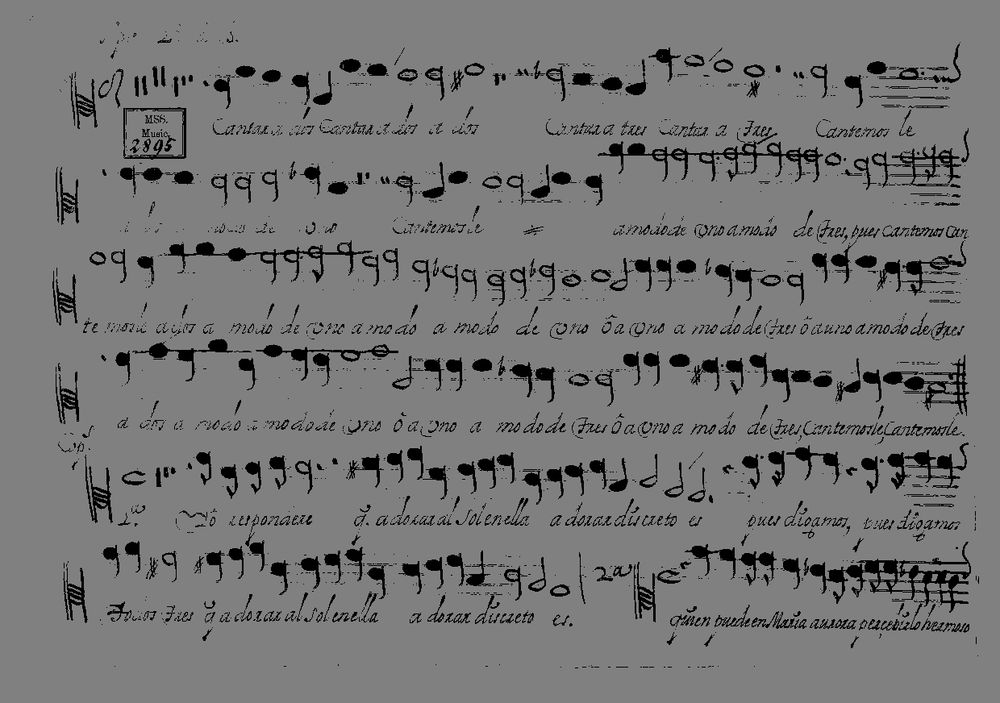 MSS.
Music.
2895
Cantar a dos Cantar a dos a dos Cantar a tres Cantar a tres Cantemos le
de uno Cantemosle a modo de uno a modo de tres, pues Cantemos Can
te mosle a dos a modo de uno a modo a modo de uno ô a uno a modo de tres ô a uno a modo de tres
a dos a modo a modo de uno ô a uno a modo de tres ô a uno a modo de tres, Cantemosle, Cantemosle.
Cop.s
1.ª Yo respondere q. adorar al Sol en ella adorar discreto es pues digamos, pues digamos
Todos tres q adorar al Sol en ella adorar discreto es. 2ª quien puede en Maria aurora hermoso